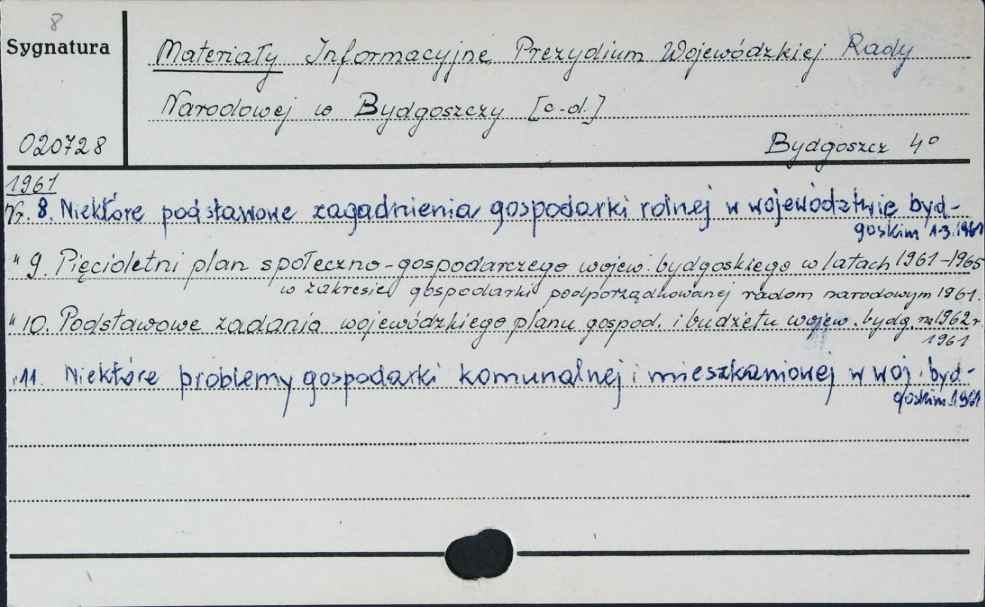 8
Sygnatura
Materiały Informacyjne Prezydium Wojewódzkiej Rady
Narodowej w Bydgoszczy [c.d.]
020728
Bydgoszcz 4°
1961
Nr. 8. Niektóre podstawowe zagadnienia gospodarki rolnej w województwie byd-
goskim 1-3.1961
" 9. Pięcioletni plan społeczno-gospodarczego wojew. bydgoskiego w latach 1961-1965
w zakresie gospodarki podporządkowanej radom narodowym 1961.
" 10. Podstawowe zadania wojewódzkiego planu gospod. i budżetu wojew. bydg. na 1962 r.
1961
" 11. Niektóre problemy gospodarki komunalnej i mieszkaniowej w woj. byd-
goskim 1961